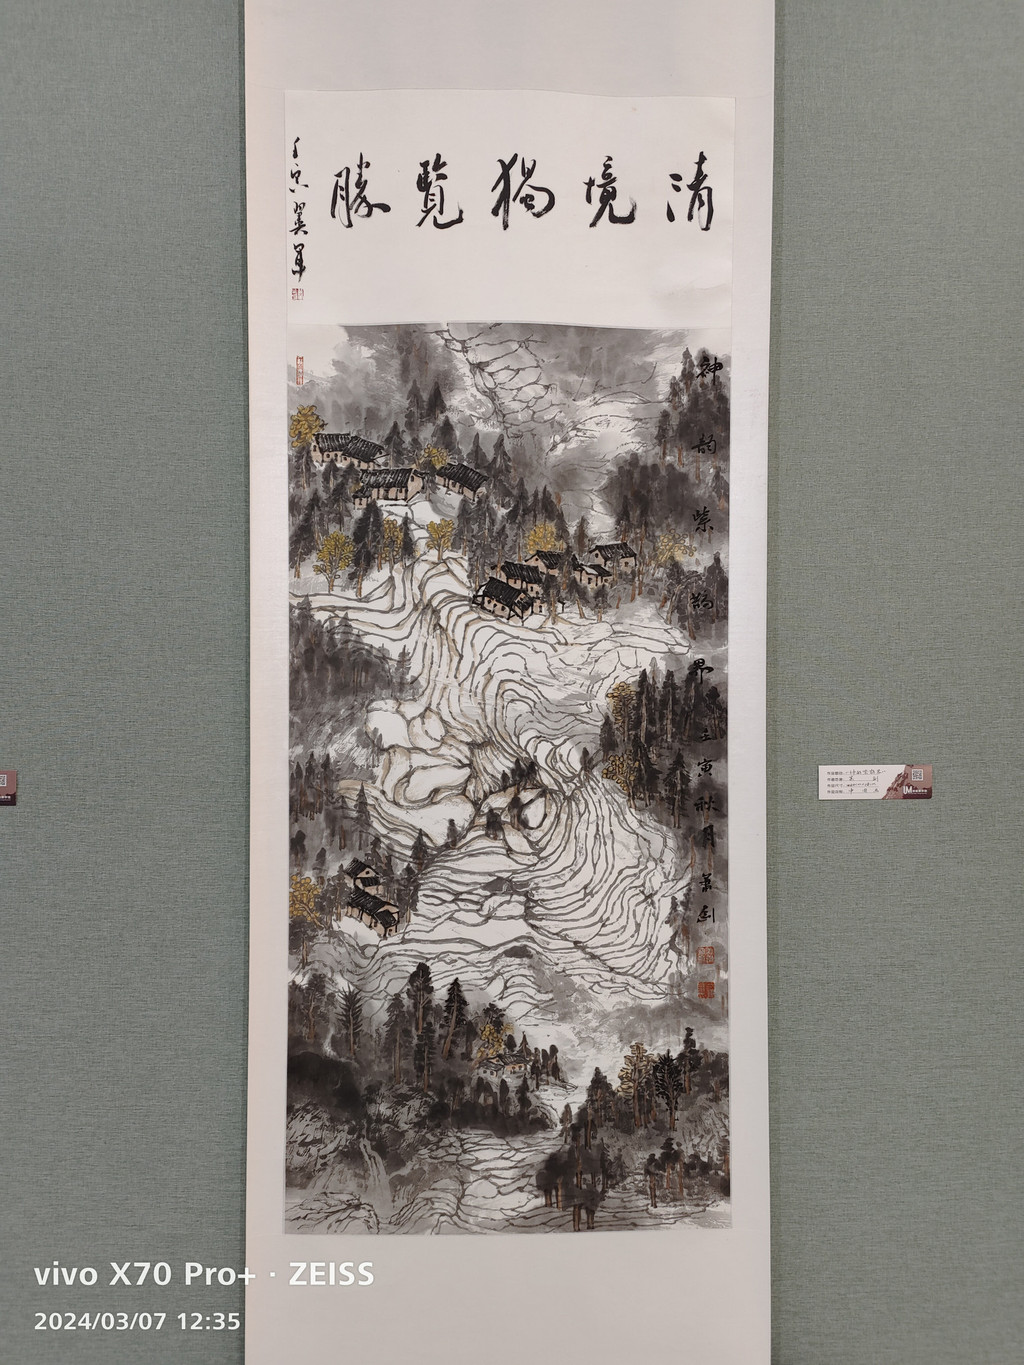 清境獨覽勝
壬寅翼軍
神韵紫鹊界 壬寅秋月 萧剑
vivo X70 Pro+ · ZEISS
2024/03/07 12:35